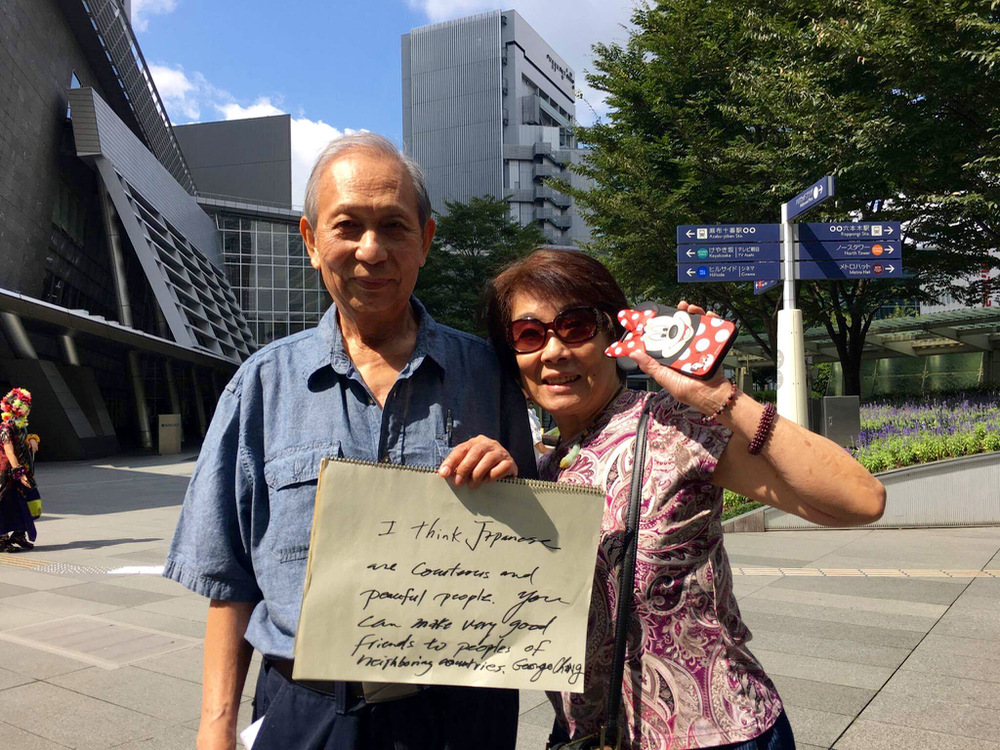 麻布十番駅
Azabu-juban Sta.
けやき坂 テレビ朝日
Keyakizaka TV Asahi
ヒルサイド シネマ
Hillside Cinema
六本木駅
Roppongi Sta.
ノースタワー
North Tower
メトロハット
Metro Hat
I think Japanese
are courteous and
peaceful people. You
can make very good
friends to peoples of
neighboring countries. George Chang